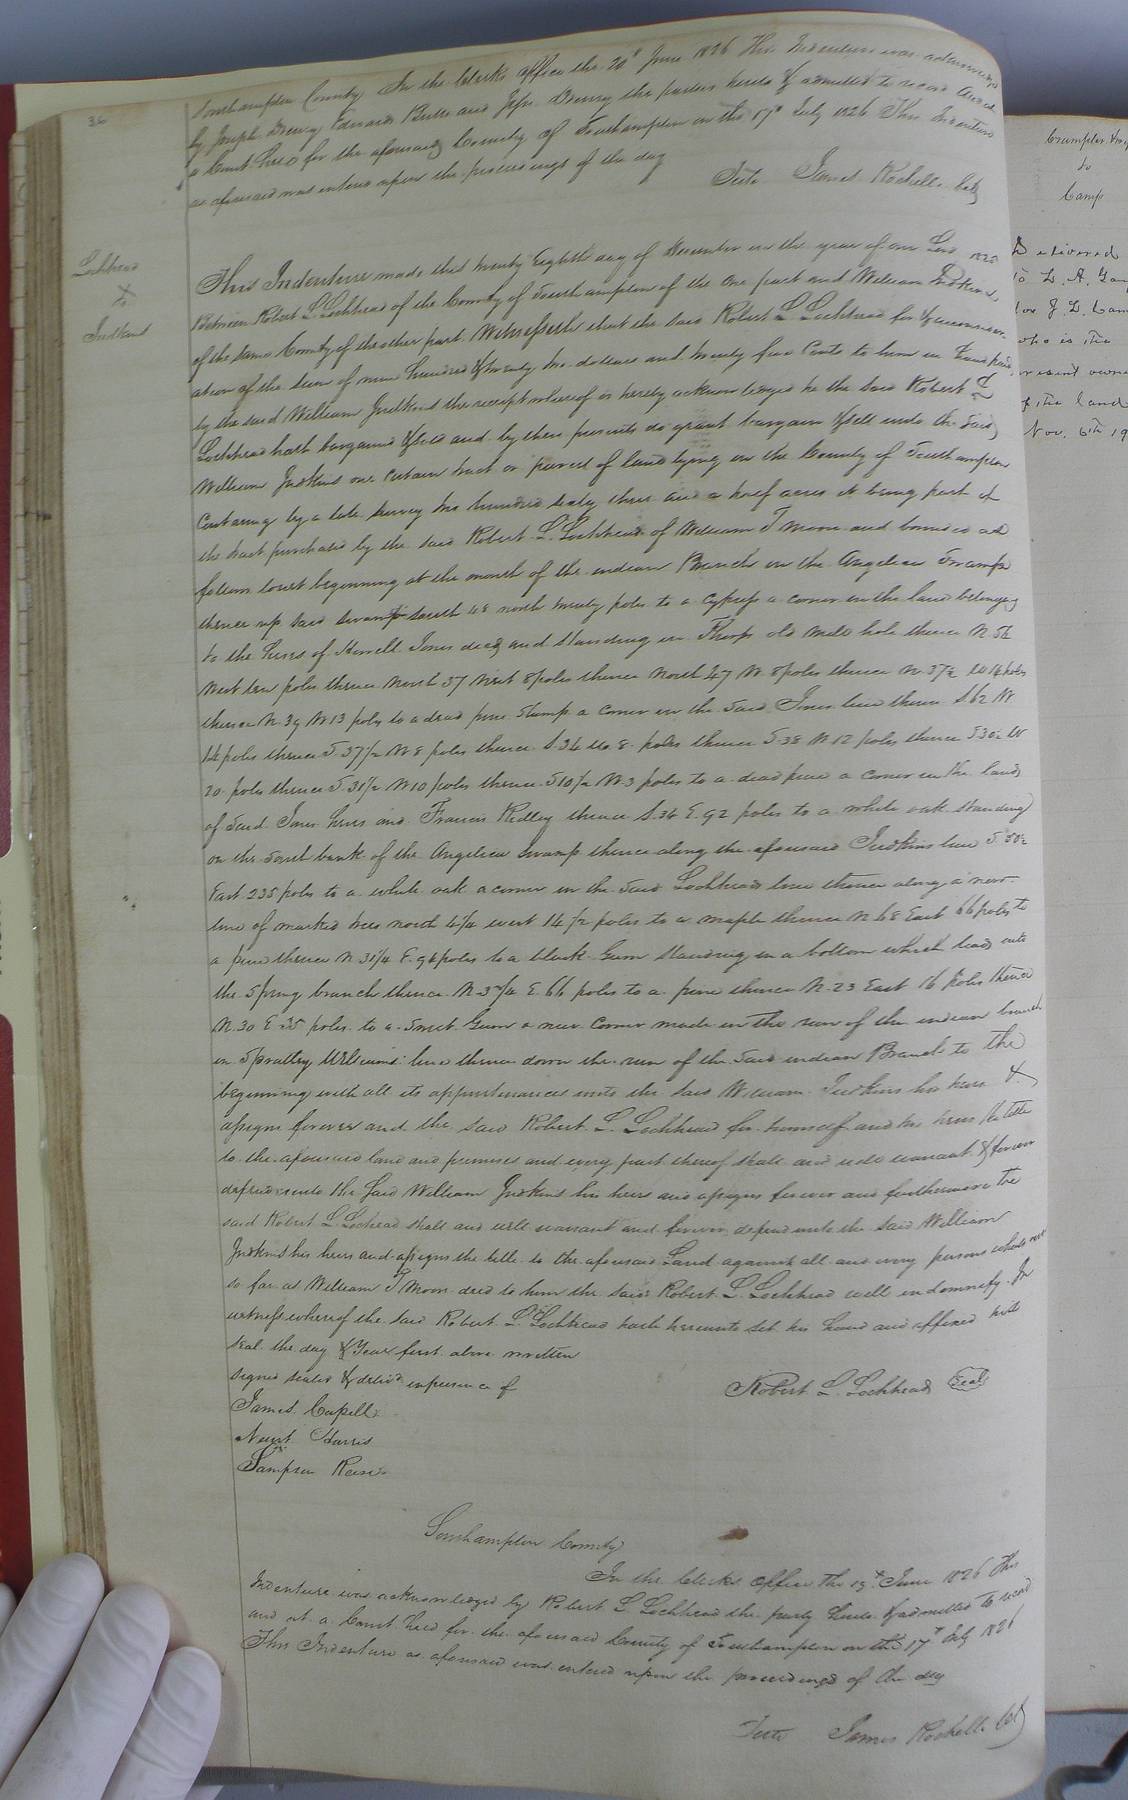 36
Southampton County In the Clerks office the 20th June 1826 This Indenture was acknowledged
by Joseph Drewry Edward Butts and Jesse Drewry the parties hereto & admitted to record and at
a Court held for the aforesaid County of Southampton on the 17th July 1826 This Indenture
as aforesaid was entered upon the proceedings of the day
Teste James Rochelle Clk
Lochhead
to
Judkins
This Indenture made this twenty Eighth day of December in the year of our Lord 1825
Between Robert L Lochhead of the County of Southampton of the one part and William Judkins
of the same County of the other part. Witnesseth that the said Robert L Lochhead for & in consider-
ation of the sum of nine hundred & twenty two dollars and twenty five Cents to him in hand paid
by the said William Judkins the receipt whereof is hereby acknowledged he the said Robert L
Lochhead hath bargained & sold and by these presents do grant bargain & sell unto the said
William Judkins one certain tract or parcel of land lying in the County of Southampton
Containing by a late survey two hundred sixty three and a half acres it being part of
the tract purchased by the said Robert L. Lochhead of William T Moore and bounded as
follows to wit beginning at the mouth of the indian Branch in the Angelica Swamp
thence up said swamp south 48 north twenty poles to a cypress a corner in the land belonging
to the heirs of Howell Jones decd and standing in Tharps old mill hole thence N. 56
West ten poles thence North 37 West 8 poles thence North 47 W 8 poles thence N. 37½ W 14 poles
thence N 39 W 13 poles to a dead pine stump a corner in the said Jones line thence S 62 W
14 poles thence S. 37½ W 8 poles thence S. 34 W. 8 poles thence S. 38 W 12 poles thence S 30½ W
20 poles thence S. 31½ W 10 poles thence S 10½ W. 3 poles to a dead pine a corner in the lands
of said Jones heirs and Francis Ridley thence S. 36 E. 92 poles to a white oak standing
on the South bank of the Angelica Swamp thence along the aforesaid Judkins line S 50½
East 235 poles to a white oak a corner in the said Lochheads line thence along a new
line of marked trees north 4¼ west 14½ poles to a maple thence N 68 East 66 poles to
a pine thence N 31¼ E. 96 poles to a black Gum standing in a bottom which leads into
the Spring branch thence N. 3¾ E. 66 poles to a pine thence N. 23 East 16 Poles thence
N. 30 E 35 poles to a Sweet Gum a new corner made in the run of the indian branch
in Spratley Williams line thence down the run of the said indian Branch to the
beginning with all its appurtenances unto the said William Judkins his heirs &
assigns forever and the said Robert L. Lochhead for himself and his heirs the title
to the aforesaid land and premises and every part thereof shall and will warrant & forever
defend unto the said William Judkins his heirs and assigns forever and furthermore the
said Robert L Lochhead shall and will warrant and forever defend unto the said William
Judkins his heirs and assigns the title to the aforesaid Land against all and every persons whatsoever
so far as William T Moore deed to him the said Robert L. Lochhead will indemnify. In
witness whereof the said Robert L. Lochhead hath hereunto set his hand and affixed his
seal the day & Year first above written
signed sealed & delivd in presence of
Robert L. Lochhead Seal
James Capell
Newit Harris
Sampson Reese
Southampton County
In the Clerks Office the 19th June 1826 This
Indenture was acknowledged by Robert L Lochhead the party hereto & admitted to record
and at a Court held for the aforesaid County of Southampton on the 17th July 1826
This Indenture as aforesaid was entered upon the proceedings of the day
Teste James Rochelle Clk
to
Camp
Delivered
to L. A. Gay
for J. L. Cam
who is the
present owne
of the land
Nov. 6th 19